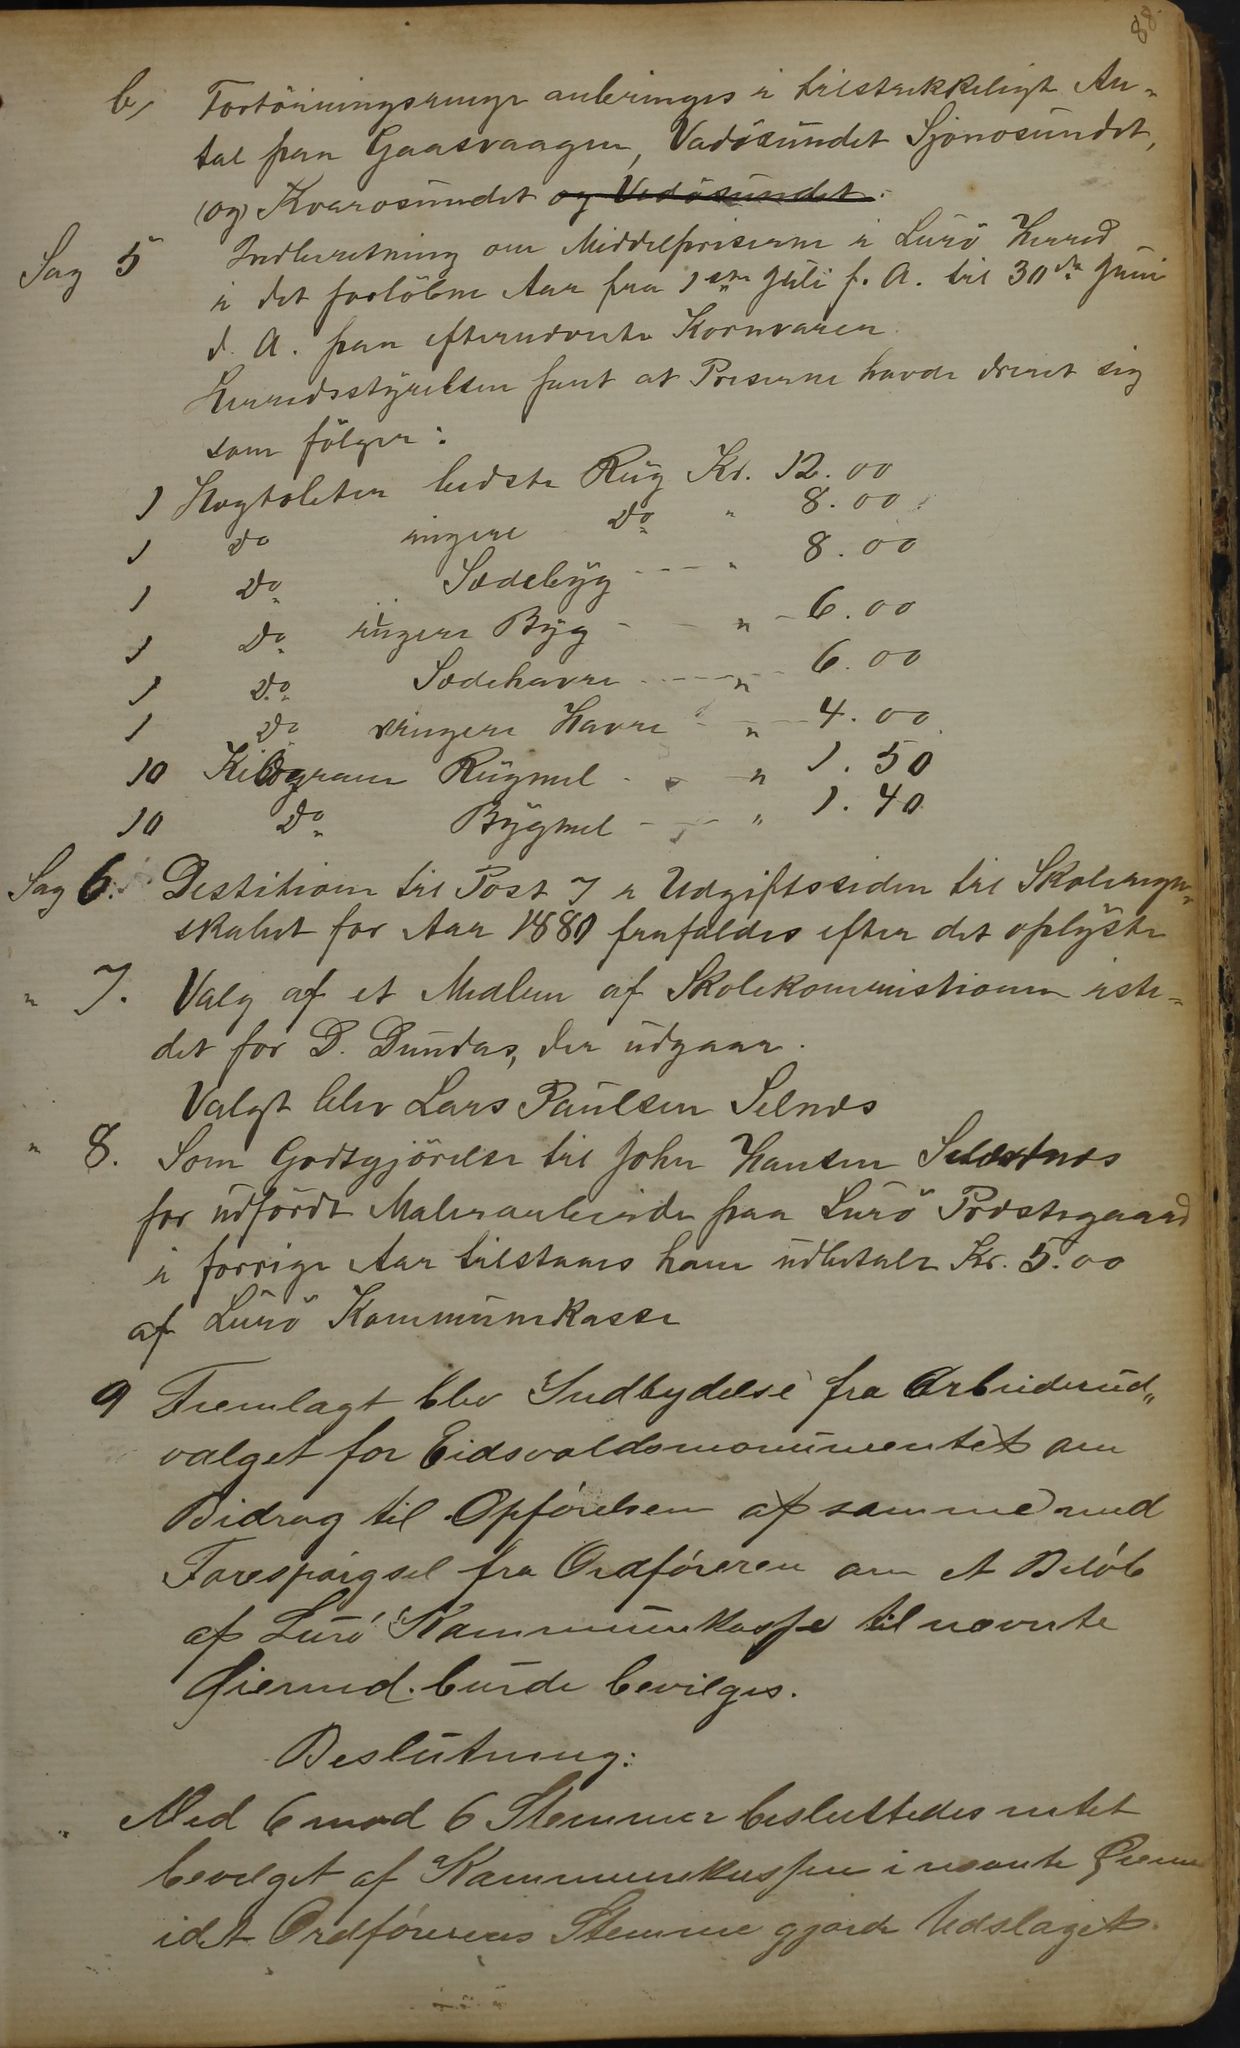 88
b, Fortöiningsringe anbringes i tilstrækkeligt An-
tal paa Gaasvaagen, Vadösundet Sjonosundet,
(og) Kvarosundet og Vadösundet.
Sag 5 Indberetning om Middelpriserne i Lurö Herred
i det forlöbne Aar fra 1ste Juli f. A. til 30de Juni
d. A. paa efternævnte Kornvarer.
Herredsstyrelsen fant at Priserne havde dreiet sig
som fölger:
1 Hegtoliter bedste Rug Kr. 12.00
1 Do ringere Do " 8.00
1 Do Sædebyg " 8.00
1 Do ringere Byg " 6.00
1 Do Sædehavre " 6.00
1 Do ringere Havre " 4.00
10 Kilogram Rugmel " 1.50
10 Do Bygmel " 1.40
Sag 6. til Post 7 i Udgiftssiden til Skoleregn-
skabet for Aar 1880 frafaldes efter det oplyste
" 7. Valg af et Medlem af Skolekommistionen iste-
det for D. Dundas, der udgaar.
Valgt blev Lars Paulsen Selnæs
" 8. Som Godtgjörelse til John Hansen
for udfördt Malerarbeide paa Lurö Præstegaard
i forrige Aar tilstaaes ham udbetalt Kr. 5.00
af Lurö Kommunekasse
9 Fremlagt blev Indbydelse fra Arbeiderud„
valget for Eidsvoldsmonumentet om
Bidrag til Opförelsen af samme med
Forespörgsel fra Ordföreren om et Belöb
af Lurö Kammunekasse til nævnte
Øiemed burde bevilges.
Beslutning:
Med 6 mod 6 Stemmer besluttedes intet
bevilget af Kammunekassen i nævnte Øiem
idet Ordförerens Stemme gjorde Udslaget.